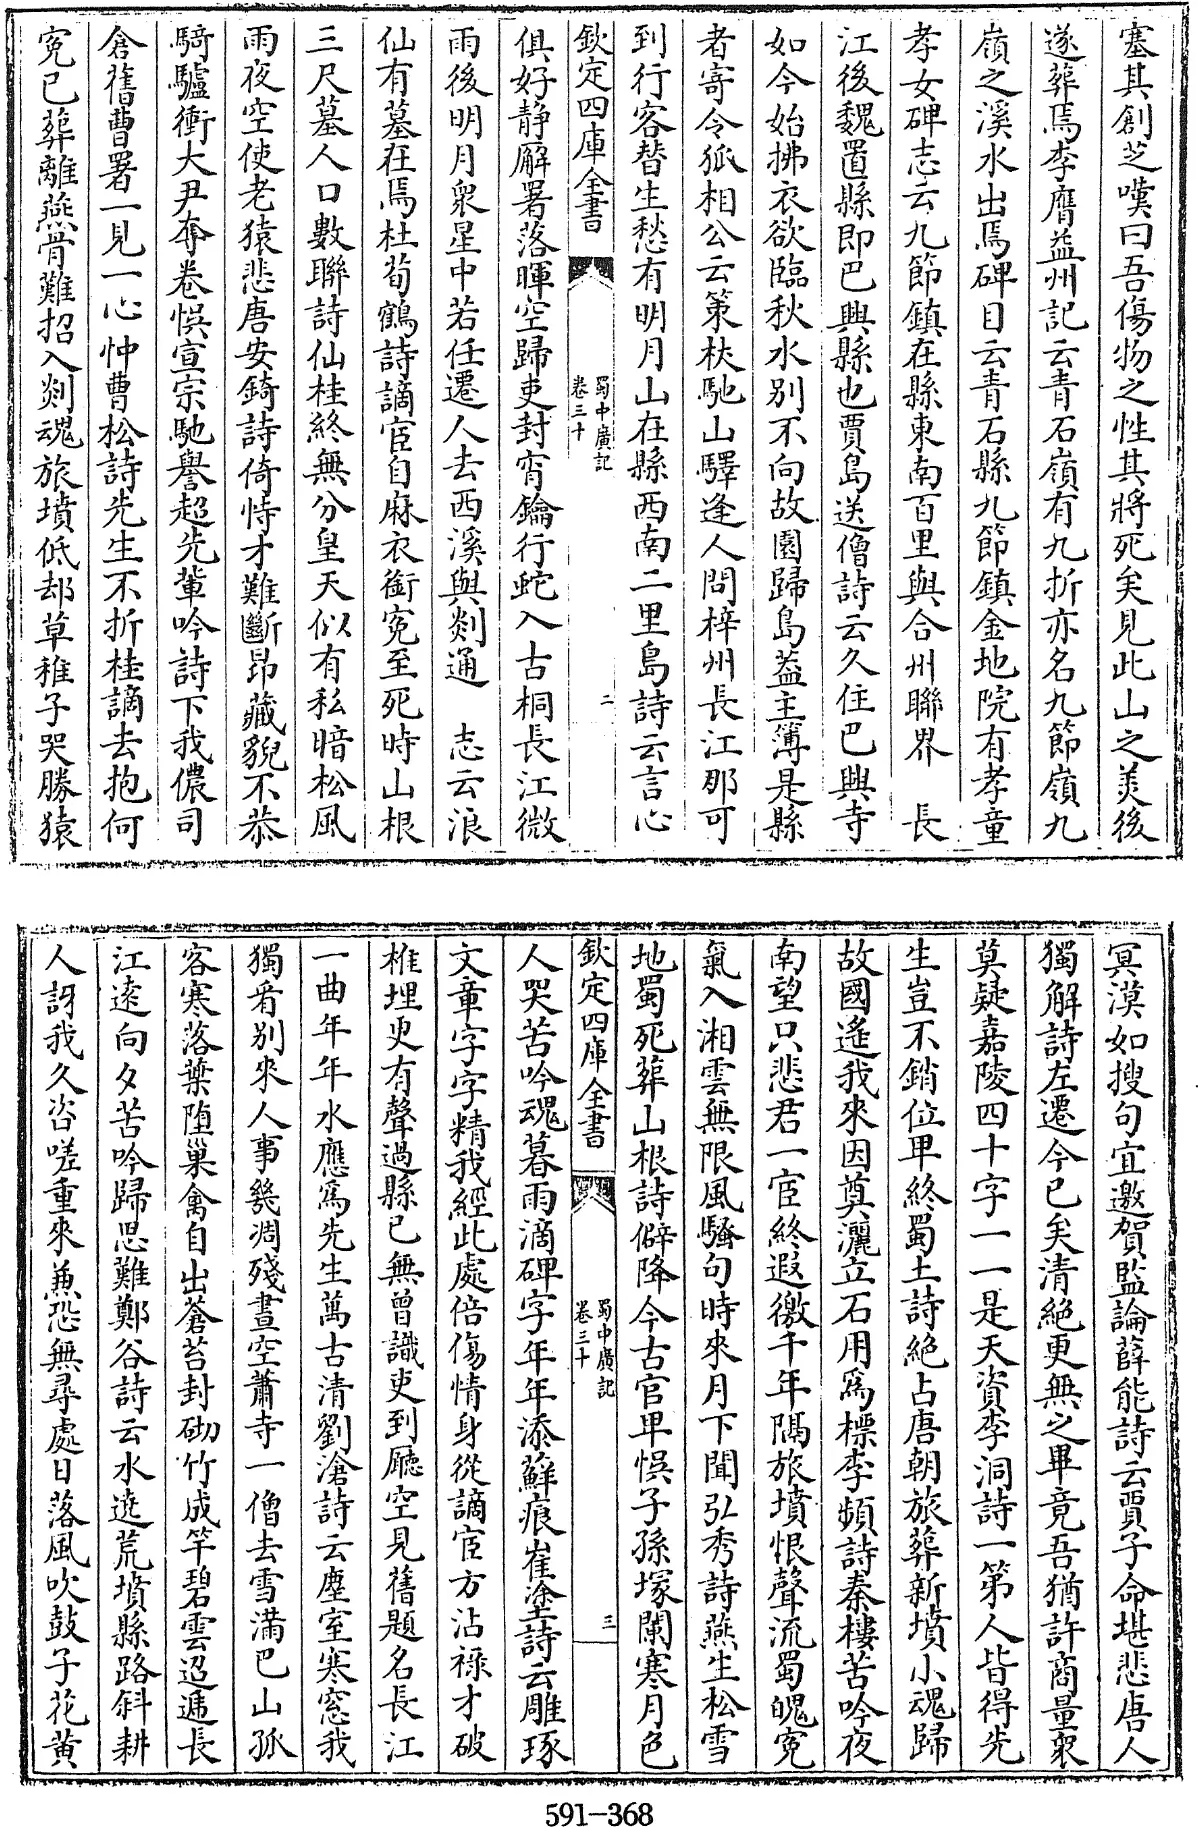 塞其創芝嘆曰吾傷物之性其將死矣見此山之美後
遂葬焉李膺益州記云青石嶺有九折亦名九節嶺九
嶺之溪水出焉碑目云青石縣九節鎮金地院有孝童
孝女碑志云九節鎮在縣東南百里與合州聯界　長
江後魏置縣即巴興縣也賈島送僧詩云久住巴興寺
如今始拂衣欲臨秋水別不向故園歸島葢主簿是縣
者寄令狐相公云策杖馳山驛逢人問梓州長江那可
到行客替生愁有明月山在縣西南二里島詩云言心
欽定四庫全書
蜀中廣記
卷三十
二
俱好靜廨署落暉空歸吏封宵鑰行蛇入古桐長江微
雨後明月衆星中若任遷人去西溪與剡通　志云浪
仙有墓在焉杜荀鶴詩謫宦自麻衣銜寃至死時山根
三尺墓人口數聯詩仙桂終無分皇天似有私暗松風
雨夜空使老猿悲唐安錡詩倚恃才難斷昂藏貌不恭
騎驢衝大尹奪卷忤宣宗馳譽超先輩吟詩下我儂司
倉舊曹署一見一心忡曹松詩先生不折桂謫去抱何
寃已葬離燕骨難招入剡魂旅墳低却草稚子哭勝猿
冥漠如搜句宜邀賀監論薛能詩云賈子命堪悲唐人
獨解詩左遷今已矣清絶更無之畢竟吾猶許商量衆
莫疑嘉陵四十字一一是天資李洞詩一第人皆得先
生豈不銷位卑終蜀土詩絶占唐朝旅葬新墳小魂歸
故國遙我來因奠灑立石用爲標李頻詩秦樓苦吟夜
南望只悲君一宦終遐徼千年隔旅墳恨聲流蜀魄寃
氣入湘雲無限風騷句時來月下聞弘秀詩燕生松雪
地蜀死葬山根詩僻降今古官卑悞子孫塚闌寒月色
欽定四庫全書
蜀中廣記
卷三十
三
人哭苦吟魂暮雨滴碑字年年添蘚痕崔塗詩云雕琢
文章字字精我經此處倍傷情身從謫宦方沾祿才破
椎埋更有聲過縣已無曾識吏到廳空見舊題名長江
一曲年年水應爲先生萬古清劉滄詩云塵室寒窓我
獨看別來人事幾凋殘晝空蕭寺一僧去雪滿巴山孤
客寒落葉墮巢禽自出蒼苔封砌竹成竿碧雲迢遞長
江遠向夕苦吟歸思難鄭谷詩云水遶荒墳縣路斜耕
人訝我久咨嗟重來兼恐無尋處日落風吹鼓子花黄
591-368